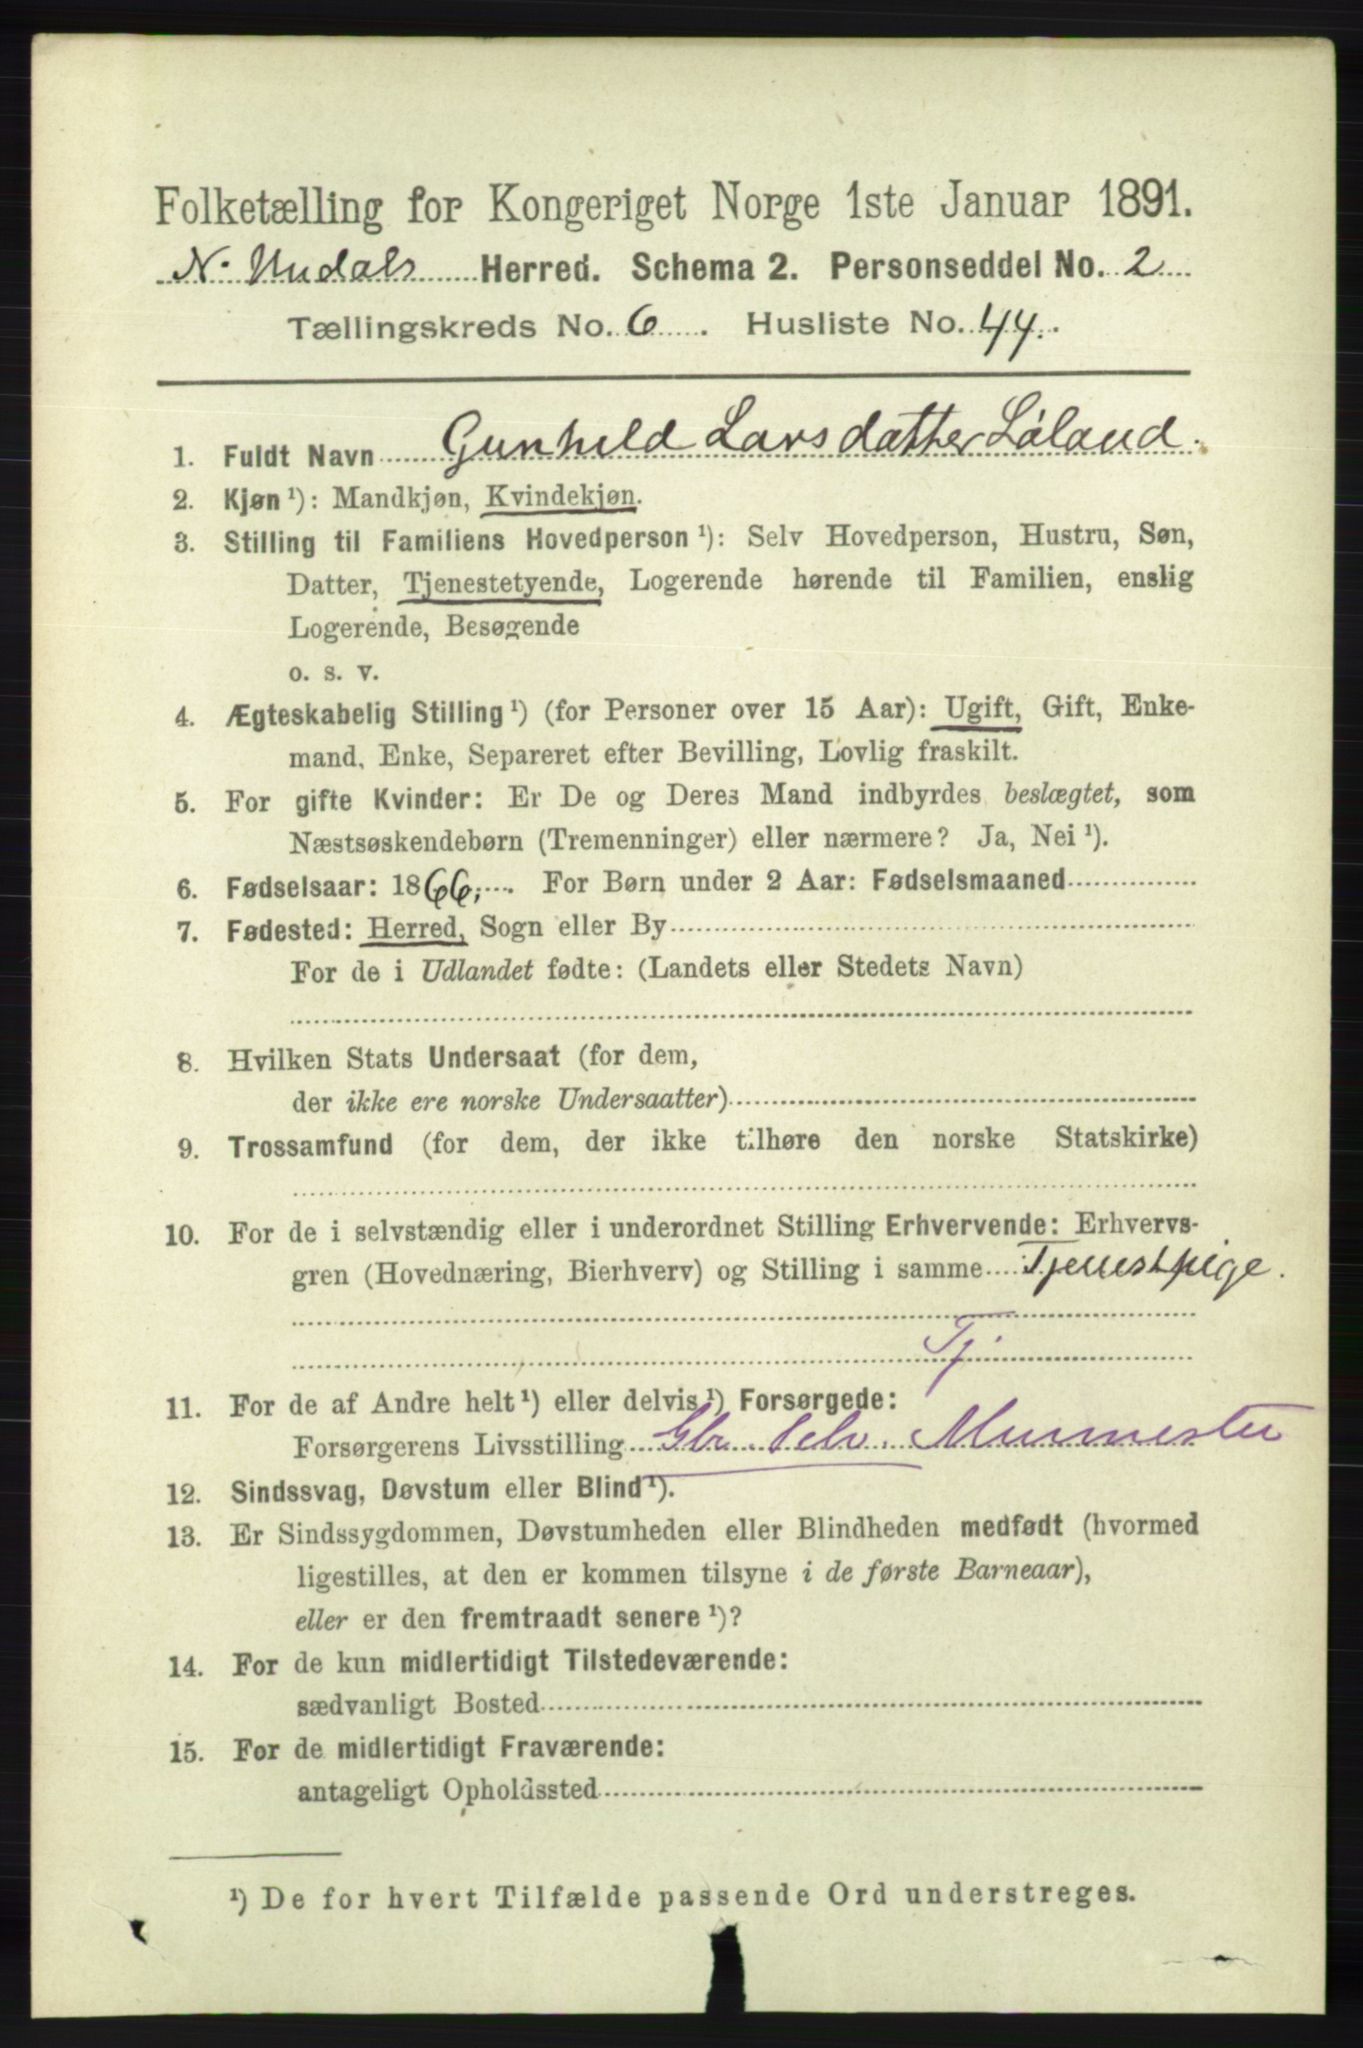 Folketælling for Kongeriget Norge 1ste Januar 1891.
N. Undals Herred. Schema 2. Personseddel No. 2
Tællingskreds No. 6. Husliste No. 44.
1. Fuldt Navn Gunhild Larsdatter Løland.
2. Kjøn ¹): Mandkjøn, Kvindekjøn.
3. Stilling til Familiens Hovedperson ¹): Selv Hovedperson, Hustru, Søn,
Datter, Tjenestetyende, Logerende hørende til Familien, enslig
Logerende, Besøgende
o. s. v.
4. Ægteskabelig Stilling ¹) (for Personer over 15 Aar): Ugift, Gift, Enke-
mand, Enke, Separeret efter Bevilling, Lovlig fraskilt.
5. For gifte Kvinder: Er De og Deres Mand indbyrdes beslægtet, som
Næstsøskendebørn (Tremenninger) eller nærmere? Ja, Nei ¹).
6. Fødselsaar: 1866. For Børn under 2 Aar: Fødselsmaaned
7. Fødested: Herred, Sogn eller By
For de i Udlandet fødte: (Landets eller Stedets Navn)
8. Hvilken Stats Undersaat (for dem,
der ikke ere norske Undersaatter)
9. Trossamfund (for dem, der ikke tilhøre den norske Statskirke)
10. For de i selvstændig eller i underordnet Stilling Erhvervende: Erhvervs-
gren (Hovednæring, Bierhverv) og Stilling i samme Tjenestpige.
Tj
11. For de af Andre helt ¹) eller delvis ¹) Forsørgede:
Forsørgerens Livsstilling Gbr. Selv. Murmester
12. Sindssvag, Døvstum eller Blind ¹).
13. Er Sindssygdommen, Døvstumheden eller Blindheden medfødt (hvormed
ligestilles, at den er kommen tilsyne i de første Barneaar),
eller er den fremtraadt senere ¹)?
14. For de kun midlertidigt Tilstedeværende:
sædvanligt Bosted
15. For de midlertidigt Fraværende:
antageligt Opholdssted
¹) De for hvert Tilfælde passende Ord understreges.